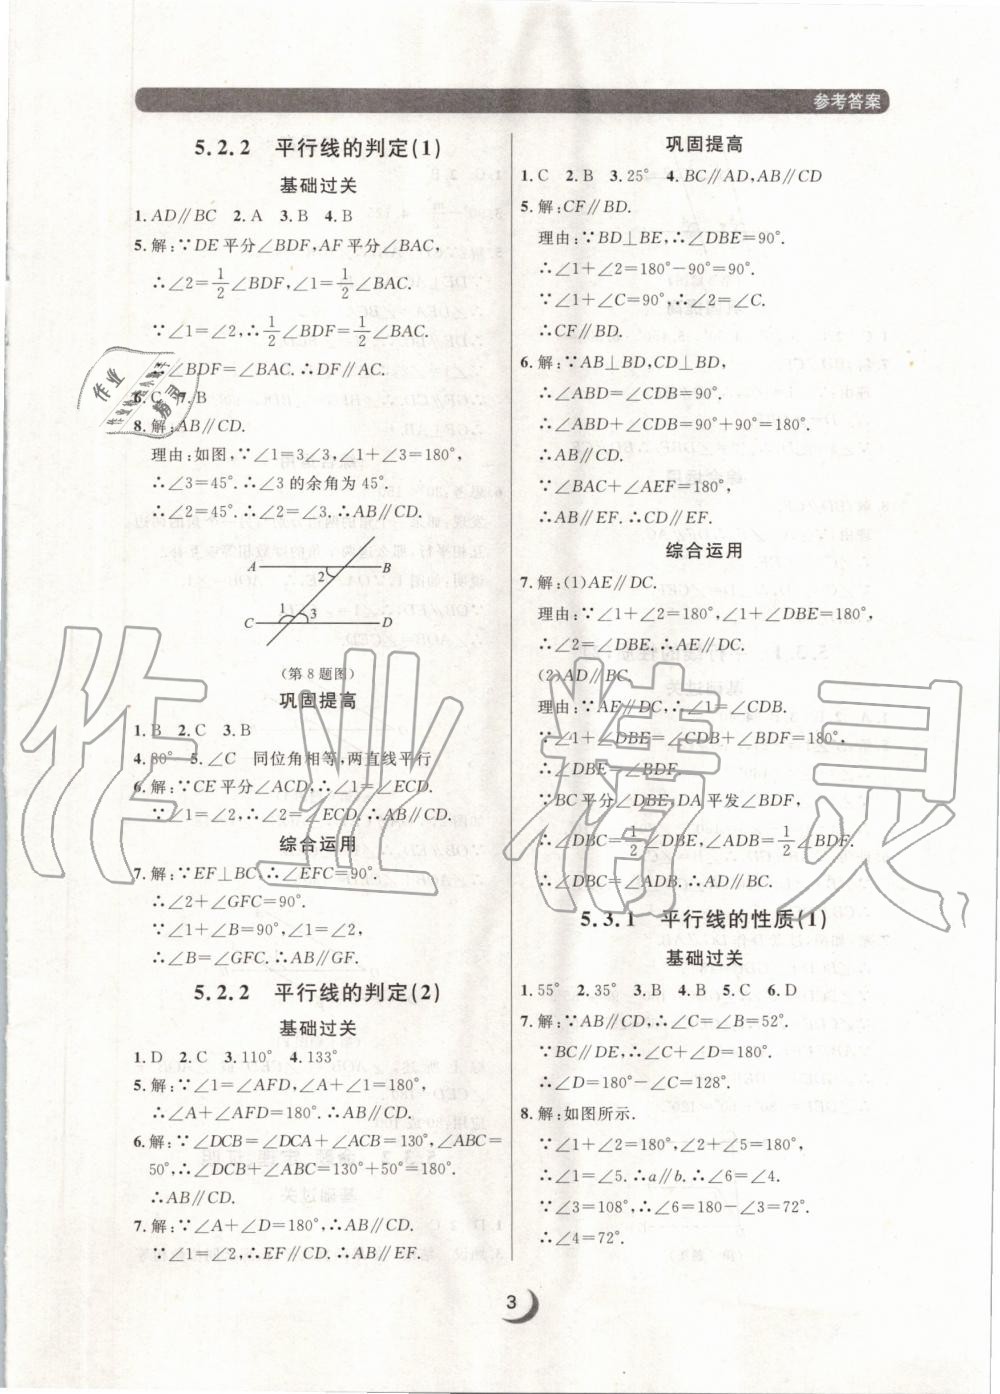 参考答案
5.2.2 平行线的判定(1)
基础过关
1.AD∥BC 2.A 3.B 4.B
5.解:∵DE平分∠BDF,AF平分∠BAC,
∴∠2=1/2∠BDF,∠1=1/2∠BAC.
∵∠1=∠2,∴1/2∠BDF=1/2∠BAC.
∴∠BDF=∠BAC.∴DF∥AC.
6.C 7.B
8.解:AB∥CD.
理由:如图,∵∠1=3∠3,∠1+∠3=180°,
∴∠3=45°.∴∠3的余角为45°.
∴∠2=45°.∴∠2=∠3.∴AB∥CD.
A B
2
1 3
C D
(第8题图)
巩固提高
1.B 2.C 3.B
4.80° 5.∠C 同位角相等,两直线平行
6.解:∵CE平分∠ACD,∴∠1=∠ECD.
∵∠1=∠2,∴∠2=∠ECD.∴AB∥CD.
综合运用
7.解:∵EF⊥BC,∴∠EFC=90°.
∴∠2+∠GFC=90°.
∵∠1+∠B=90°,∠1=∠2,
∴∠B=∠GFC.∴AB∥GF.
5.2.2 平行线的判定(2)
基础过关
1.D 2.C 3.110° 4.133°
5.解:∵∠1=∠AFD,∠A+∠1=180°,
∴∠A+∠AFD=180°.∴AB∥CD.
6.解:∵∠DCB=∠DCA+∠ACB=130°,∠ABC=
50°,∴∠DCB+∠ABC=130°+50°=180°.
∴AB∥CD.
7.解:∵∠A+∠D=180°,∴AB∥CD.
∵∠1=∠2,∴EF∥CD.∴AB∥EF.
巩固提高
1.C 2.B 3.25° 4.BC∥AD,AB∥CD
5.解:CF∥BD.
理由:∵BD⊥BE,∴∠DBE=90°.
∴∠1+∠2=180°-90°=90°.
∵∠1+∠C=90°,∴∠2=∠C.
∴CF∥BD.
6.解:∵AB⊥BD,CD⊥BD,
∴∠ABD=∠CDB=90°.
∴∠ABD+∠CDB=90°+90°=180°.
∴AB∥CD.
∵∠BAC+∠AEF=180°,
∴AB∥EF.∴CD∥EF.
综合运用
7.解:(1)AE∥DC.
理由:∵∠1+∠2=180°,∠1+∠DBE=180°,
∴∠2=∠DBE.∴AE∥DC.
(2)AD∥BC.
理由:∵AE∥DC,∴∠1=∠CDB.
∵∠1+∠DBE=∠CDB+∠BDF=180°,
∴∠DBE=∠BDF.
∵BC平分∠DBE,DA平发∠BDF,
∴∠DBC=1/2∠DBE,∠ADB=1/2∠BDF.
∴∠DBC=∠ADB.∴AD∥BC.
5.3.1 平行线的性质(1)
基础过关
1.55° 2.35° 3.B 4.B 5.C 6.D
7.解:∵AB∥CD,∴∠C=∠B=52°.
∵BC∥DE,∴∠C+∠D=180°.
∴∠D=180°-∠C=128°.
8.解:如图所示.
∵∠1+∠2=180°,∠2+∠5=180°,
∴∠1=∠5.∴a∥b.∴∠6=∠4.
∵∠3=108°,∴∠6=180-∠3=72°.
∴∠4=72°.
3
作业
精灵
作业精灵